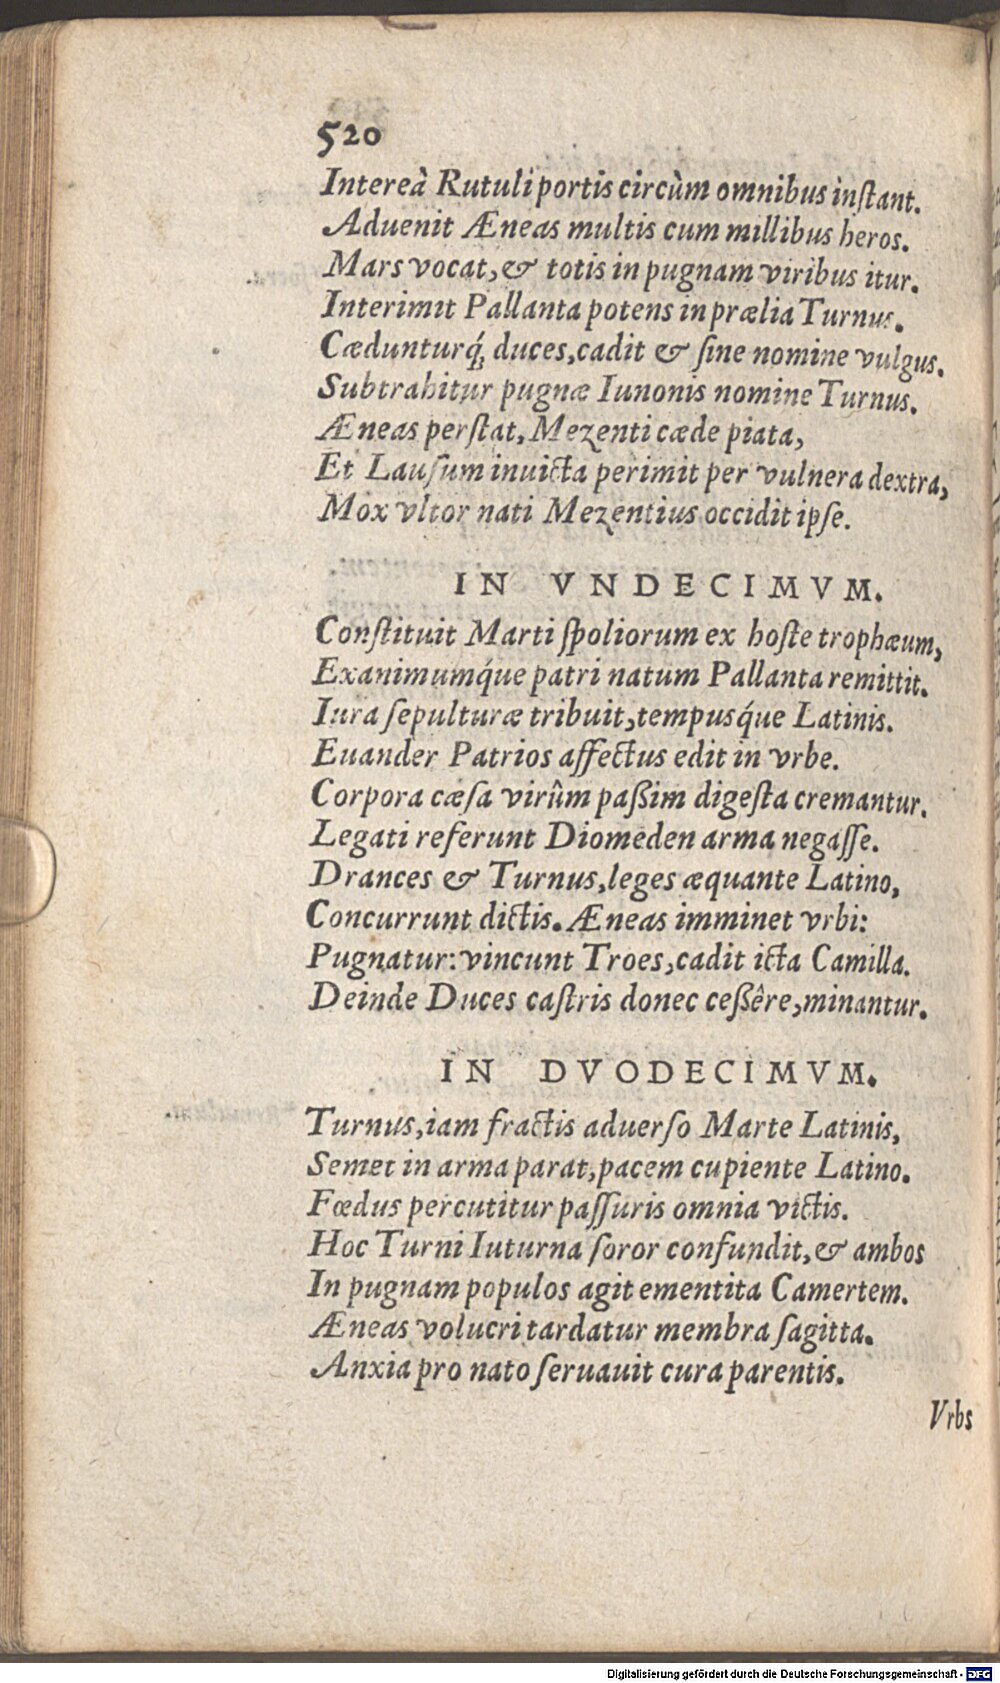 520
Intereà Rutuli portis circùm omnibus inſtant.
Aduenit Æneas multis cum millibus heros.
Mars vocat, & totis in pugnam viribus itur.
Interimit Pallanta potens in prælia Turnus.
Cædunturq́; duces, cadit & ſine nomine vulgus.
Subtrahitur pugnæ Iunonis nomine Turnus.
Æneas perſtat, Mezenti cæde piata,
Et Lauſum inuicta perimit per vulnera dextra,
Mox vltor nati Mezentius occidit ipſe.
IN VNDECIMVM.
Conſtituit Marti ſpoliorum ex hoſte trophæum,
Exanimumq́ue patri natum Pallanta remittit.
Iura ſepulturæ tribuit, tempusq́ue Latinis.
Euander Patrios affectus edit in vrbe.
Corpora cæſa virûm paßim digeſta cremantur.
Legati referunt Diomeden arma negaſſe.
Drances & Turnus, leges æquante Latino,
Concurrunt dictis. Æneas imminet vrbi:
Pugnatur: vincunt Troes, cadit icta Camilla.
Deinde Duces caſtris donec ceßêre, minantur.
IN DVODECIMVM.
Turnus, iam fractis aduerſo Marte Latinis,
Semet in arma parat, pacem cupiente Latino.
Fœdus percutitur paſſuris omnia victis.
Hoc Turni Iuturna ſoror confundit, & ambos
In pugnam populos agit ementita Camertem.
Æneas volucri tardatur membra ſagitta.
Anxia pro nato ſeruauit cura parentis.
Vrbs
Digitalisierung gefördert durch die Deutsche Forschungsgemeinschaft - DFG